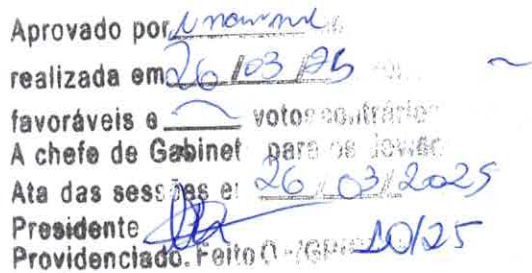 Aprovado por
realizada em 26/03/25
favoráveis e votos contrários
A chefe de Gabinet para os
Ata das sessões e: 26/03/2025
Presidente
Providenciado. Feito O 10/25